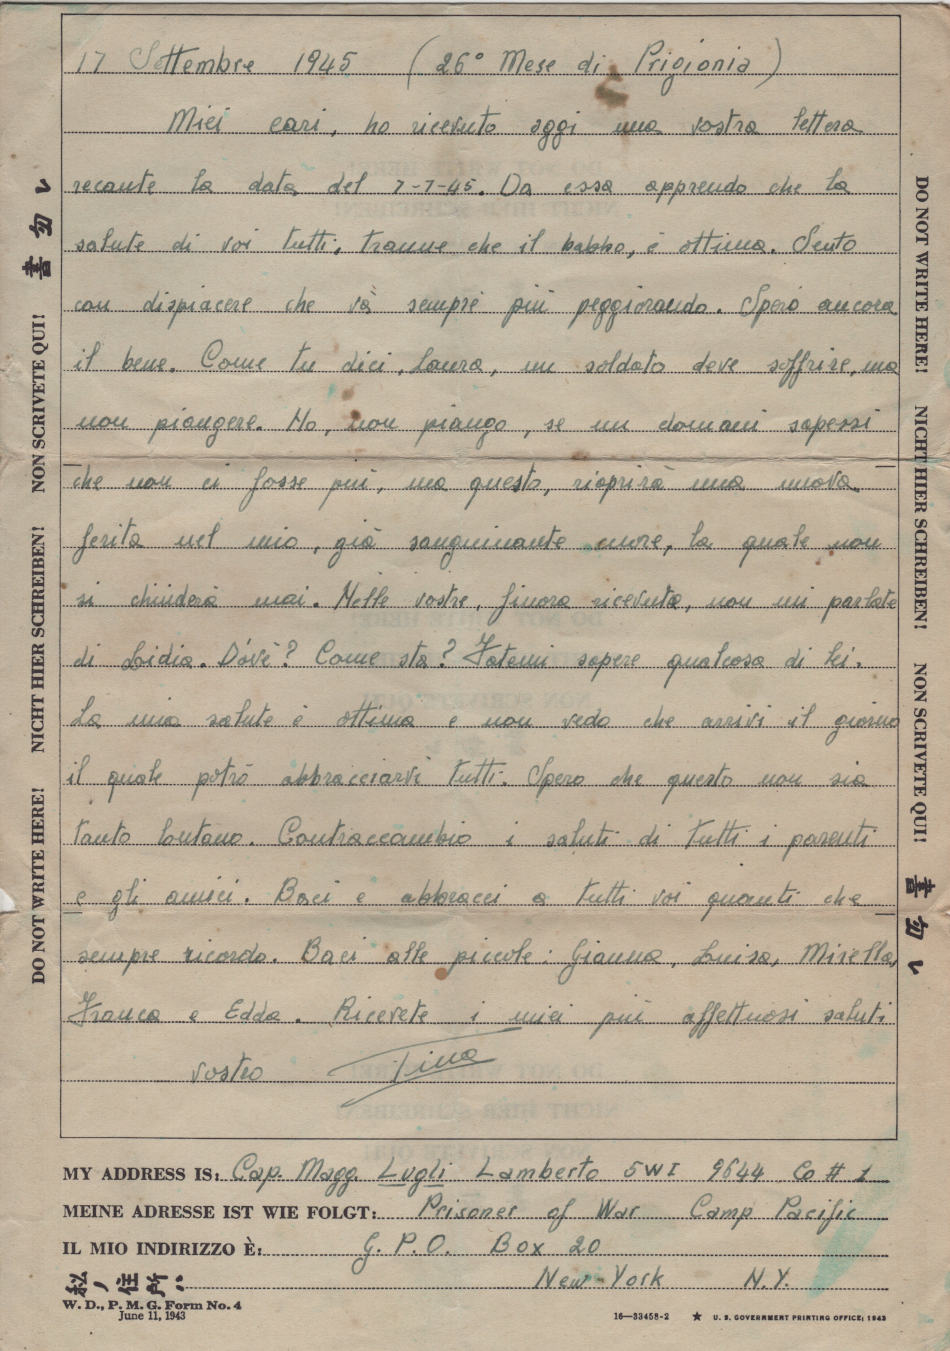 17 Settembre 1945 (26° Mese di Prigionia)
Miei cari, ho ricevuto oggi una vostra lettera
recante la data del 7-7-45. Da essa apprendo che la
salute di voi tutti, tranne che il babbo, è ottima. Sento
con dispiacere che và sempre più peggiorando. Spero ancora
il bene. Come tu dici, Laura, un soldato deve soffrire, ma
non piangere. No, non piango, se un domani sapessi
che non ci fosse più, ma questo, riaprirà una nuova
ferita nel mio, già sanguinante cuore, la quale non
si chiuderà mai. Nelle vostre, finora ricevute, non mi parlate
di Lidia. Dov'è? Come sta? Fatemi sapere qualcosa di lei.
La mia salute è ottima e non vedo che arrivi il giorno
il quale potrò abbracciarvi tutti. Spero che questo non sia
tanto lontano. Contraccambio i saluti di tutti i parenti
e gli amici. Baci e abbracci a tutti voi quanti che
sempre ricordo. Baci alle piccole: Gianna, Luisa, Mirella,
Franca e Edda. Ricevete i miei più affettuosi saluti
vostro
MY ADDRESS IS: Cap. Magg. Lugli Lamberto 5WI 9644 Co # 1
MEINE ADRESSE IST WIE FOLGT: Prisoner of War Camp Pacific
IL MIO INDIRIZZO È: G. P. O. Box 20
私ノ住所ハ New-York N.Y.
W. D., P. M. G. Form No. 4
June 11, 1943
16—33458-2 ★ U. S. GOVERNMENT PRINTING OFFICE: 1943
DO NOT WRITE HERE! NICHT HIER SCHREIBEN! NON SCRIVETE QUI! 書勿レ
DO NOT WRITE HERE! NICHT HIER SCHREIBEN! NON SCRIVETE QUI! 書勿レ